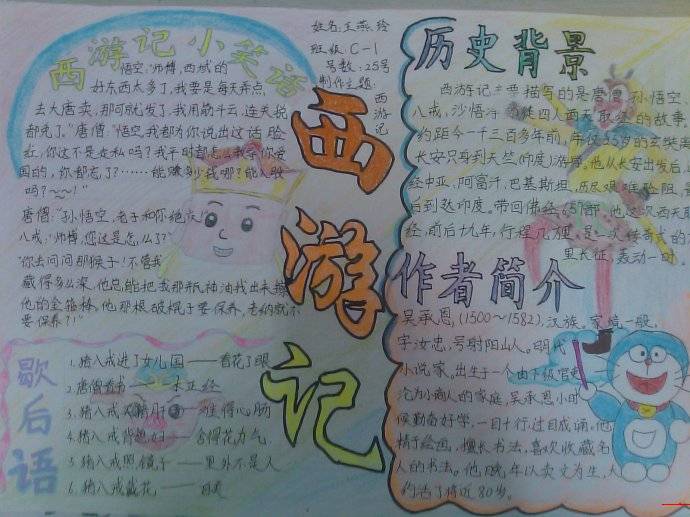 西游记小笑话
悟空:"师傅,西域的
好东西太多了,我要是每天弄点,
去大唐卖,那可就发了,我用筋斗云,连关税
都免了。"唐僧:"悟空,我都为你说出这话脸
红,你这不是走私吗?我平时都怎么教导你爱
国的,你都忘了?……能赚多少我哪?能入股
吗?~~!"
唐僧:"孙悟空,老子和你绝友!"
八戒:"师傅,您这是怎么了?"
"你去问问那猴子!不管我
藏得多么深,他总能把我那瓶神油找出来擦
他的金箍棒,他那根破棍子要保养,老衲就不
要保养?!"
歇后语
1.猪八戒进了女儿国——看花了眼
2.唐僧看书——一本正经
3.猪八戒——难得心肠
4.猪八戒背媳妇——舍得花力气
5.猪八戒照镜子——里外不是人
6.猪八戒戴花——自美
姓名:王燕玲
班级:C-1
号数:25号
制作主题:
西游记
西游记
历史背景
西游记主要描写的是唐僧、孙悟空、
八戒,沙悟净师徒四人西天取经的故事。
约距今一千三百多年前,年仅35岁的玄奘离
长安只身到天竺(印度)游学。他从长安出发后,
经中亚,阿富汗,巴基斯坦,历尽艰难险阻,
后到达印度。带回佛经657部。他这次西天
经,前后十九年,行程几万里,是一次传奇式的
里长征,轰动一时。
作者简介
吴承恩,(1500~1582),汉族。家境一般。
字汝忠,号射阳山人。明代
小说家。出生于一个由下级官吏
沦为小商人的家庭,吴承恩小时
候勤奋好学,一目十行,过目成诵,他
精于绘画,擅长书法,喜欢收藏名
人的书法。他晚年以卖文为生,大
约活了将近80岁。